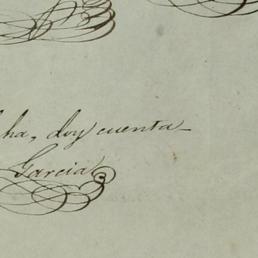 ha, doy cuenta
Garcia